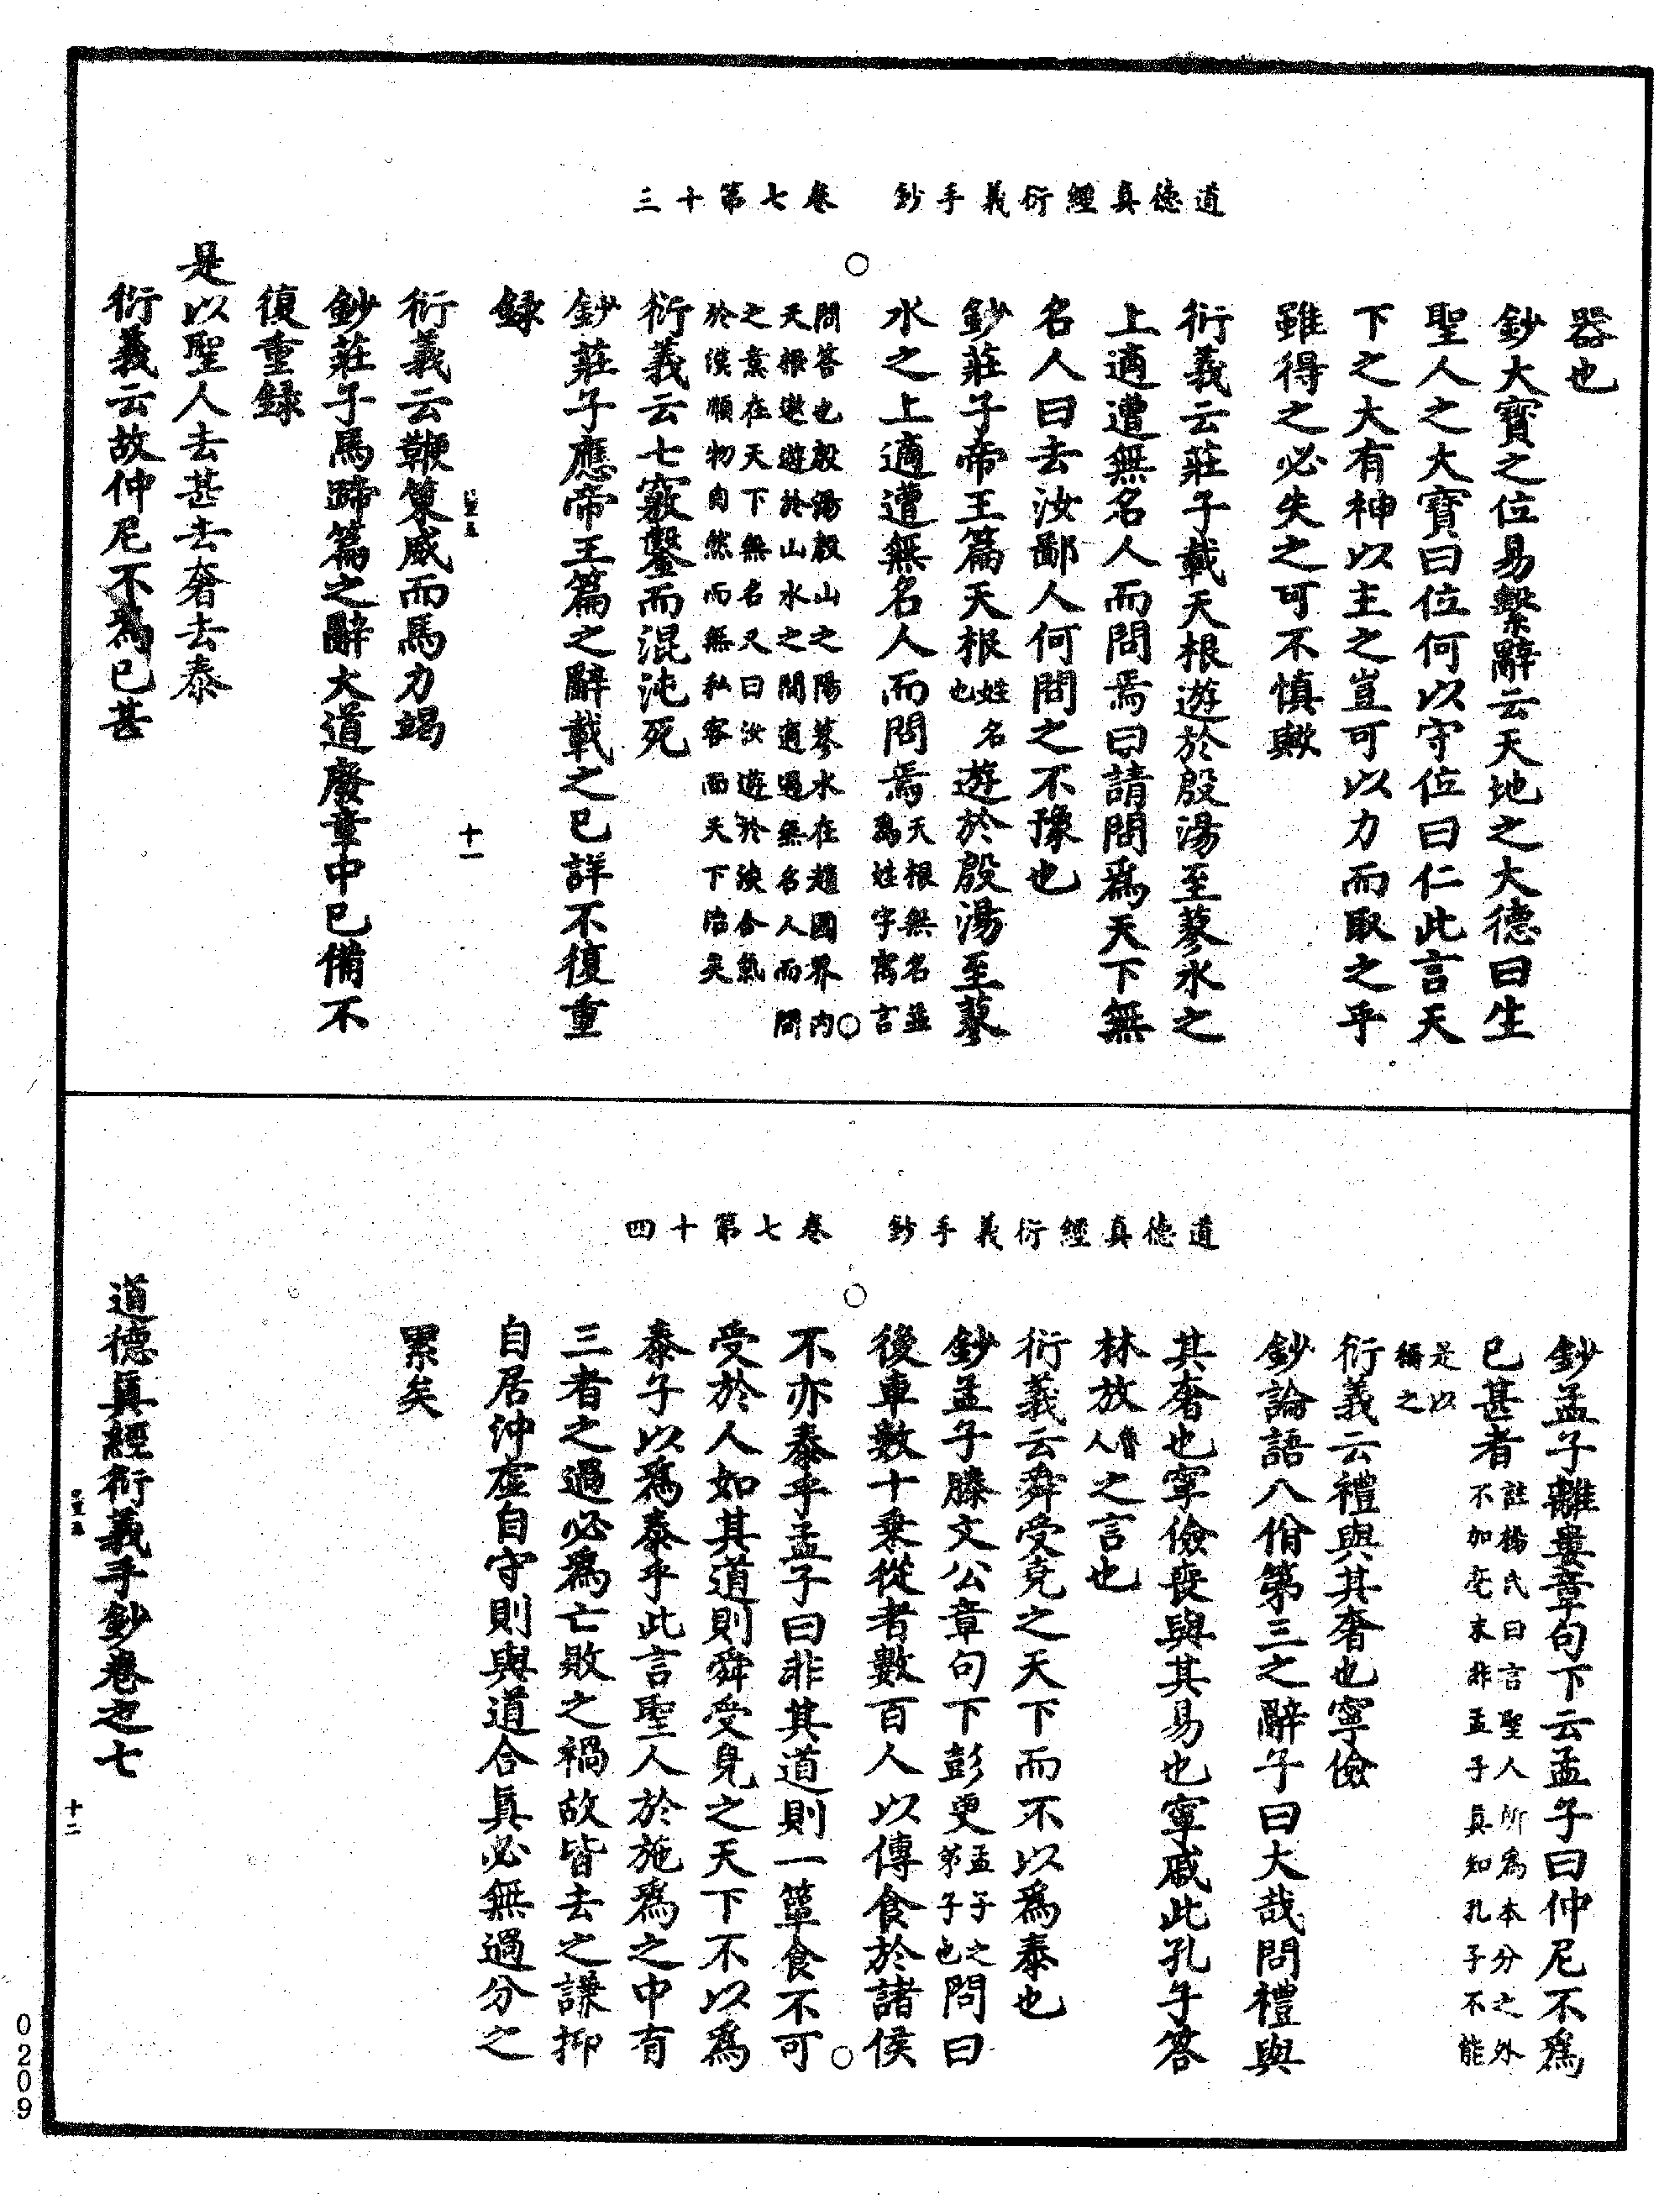 道德真經衍義手鈔　卷七第十三
器也
鈔大寶之位易繫辭云天地之大德曰生
聖人之大寶曰位何以守位曰仁此言天
下之大有神以主之豈可以力而取之乎
雖得之必失之可不慎歟
衍義云莊子載天根遊於殷湯至蓼水之
上適遭無名人而問焉曰請問爲天下無
名人曰去汝鄙人何問之不豫也
鈔莊子帝王篇天根姓名也遊於殷湯至蓼
水之上適遭無名人而問焉天根無名並爲姓字寓言
問答也殷湯殷山之陽蓼水在趙國界内
天根遨遊於山水之間適遇無名人而問
之意在天下無名又曰汝遊於淡合氣
於漠順物自然而無私容而天下治矣
衍義云七竅鑿而混沌死
鈔莊子應帝王篇之辭載之已詳不復重
録
十一
衍義云鞭策威而馬力竭
鈔莊子馬蹄篇之辭大道廢章中已備不
復重録
是以聖人去甚去奢去泰
衍義云故仲尼不爲已甚
道德真經衍義手鈔　卷七第十四
鈔孟子離婁章句下云孟子曰仲尼不爲
已甚者註楊氏曰言聖人所爲本分之外不加毫末非孟子真知孔子不能
是以稱之
衍義云禮與其奢也寧儉
鈔論語八佾第三之辭子曰大哉問禮與
其奢也寧儉喪與其易也寧戚此孔子答
林放魯人之言也
衍義云舜受堯之天下而不以爲泰也
鈔孟子滕文公章句下彭更孟子之弟子也問曰
後車數十乘從者數百人以傳食於諸侯
不亦泰乎孟子曰非其道則一簞食不可
受於人如其道則舜受堯之天下不以爲
泰子以爲泰乎此言聖人於施爲之中有
三者之過必爲亡敗之禍故皆去之謙抑
自居沖虛自守則與道合眞必無過分之
累矣
道德眞經衍義手鈔卷之七
十二
0209